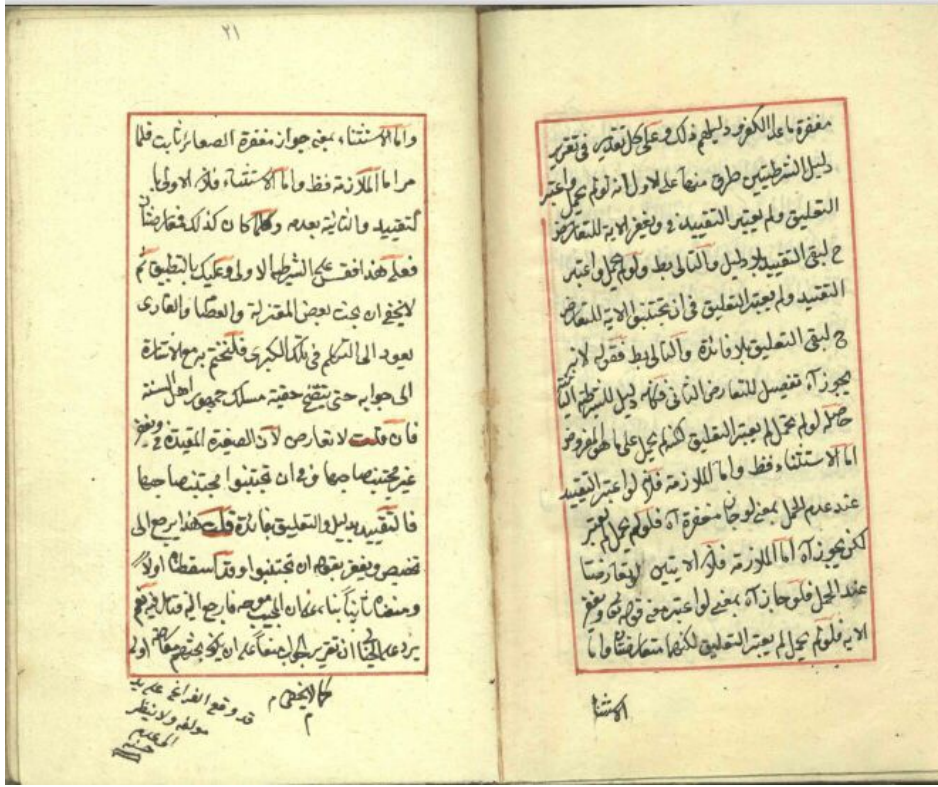 مغفرة ما عدا الكفر ودليلهم ذلك وعلى كل تقدير في تقرير
دليل الشرطيتين طرق منها على الاول انه لو لم يحمل واعتبر
التعليق ولم يعتبر التقييد في ويغفر الاية للتعارض
ح لبقى التقييد بلا دليل والتالى بط ولو لم يحمل واعتبر
التقييد ولم يعتبر التعليق في ان تجتنبوا الاية للتعارض
ح لبقى التعليق بلا فائدة والتالى بط فقوله لانه
يجوز آه تفصيل للتعارض الثاني فكانه دليل للشرطية الثانية
حاصله لو لم يحمل لم يعتبر التعليق لكنه لم يحمل على ما هو المفروض
اما الاستثناء فظ واما الملازمة فلانه لو اعتبر التقييد
عند عدم الحمل بمعنى لو جاز مغفرة آه فلو لم يحمل لم يعتبر
لكن يجوز آه اما الملازمة فلان الايتين لا يتعارضتا
عند الحمل فلو جاز آه بمعنى لو اعتبر معنى قوله تعالى ويغفر
الاية فلو لم يحمل لم يعتبر التعليق لكنهما متعارضتان واما
الاستثنا
٢١
واما الاستثناء بمعنى جواز مغفرة الصغائر ثابت فلما
مر اما الملازمة فظ واما الاستثناء فلان الاولى با
لتقييد والثانية بعدمه وكلما كان كذلك فتعارضتان
فعلى هذا فقس على الشرطية الاولى وعليك بالتطبيق ثم
لا يخفى ان بحث بعض المعتزلة والعصام والقارى
يعود الى التكلم في تلك الكبرى فلنختتم برمع الاشارة
الى جوابه حتى يتضح حقية مسلك جمهور اهل السنة
فان قلت لا تعارض لان الصغيرة المقيدة في ويغفر
غير مجتنب صاحبها وفي ان تجتنبوا مجتنب صاحبها
فالتقييد بدليل والتعليق بفائدة قلت هذا يرجع الى
تخصيص ويغفر بقوله ان تجتنبوا وقد اسقطناه اولا
ومنعناه ثانيا بناء على ان المجيب موجه فارجع اليه فتأمل فيه نعم
يرد على الخيالى ان تقرير الجواب منعا على ان يكون بحثهم معارضة اولى
كما لا يخفى م
م
قد وقع الفراغ على يد
مولفه ولا نيظر
الى عدم